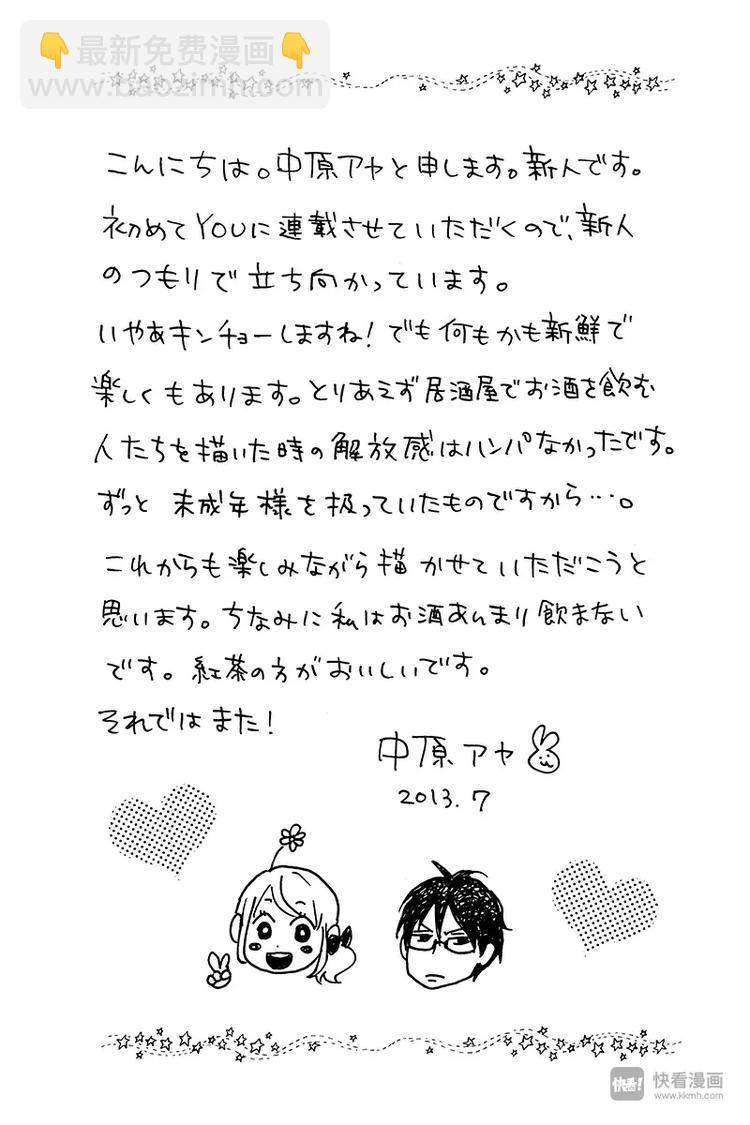 👇最新免费漫画👇
www.baozimh.com
こんにちは。中原アヤと申します。新人です。
初めてYOUに連載させていただくので、新人
のつもりで立ち向かっています。
いやあキンチョーしますね！でも何もかも新鮮で
楽しくもあります。とりあえず居酒屋でお酒を飲む
人たちを描いた時の解放感はハンパなかったです。
ずっと未成年様を扱っていたものですから…。
これからも楽しみながら描かせていただこうと
思います。ちなみに私はお酒あんまり飲まない
です。紅茶の方がおいしいです。
それではまた！
中原アヤ
2013.7
快看!
快看漫画
www.kkmh.com